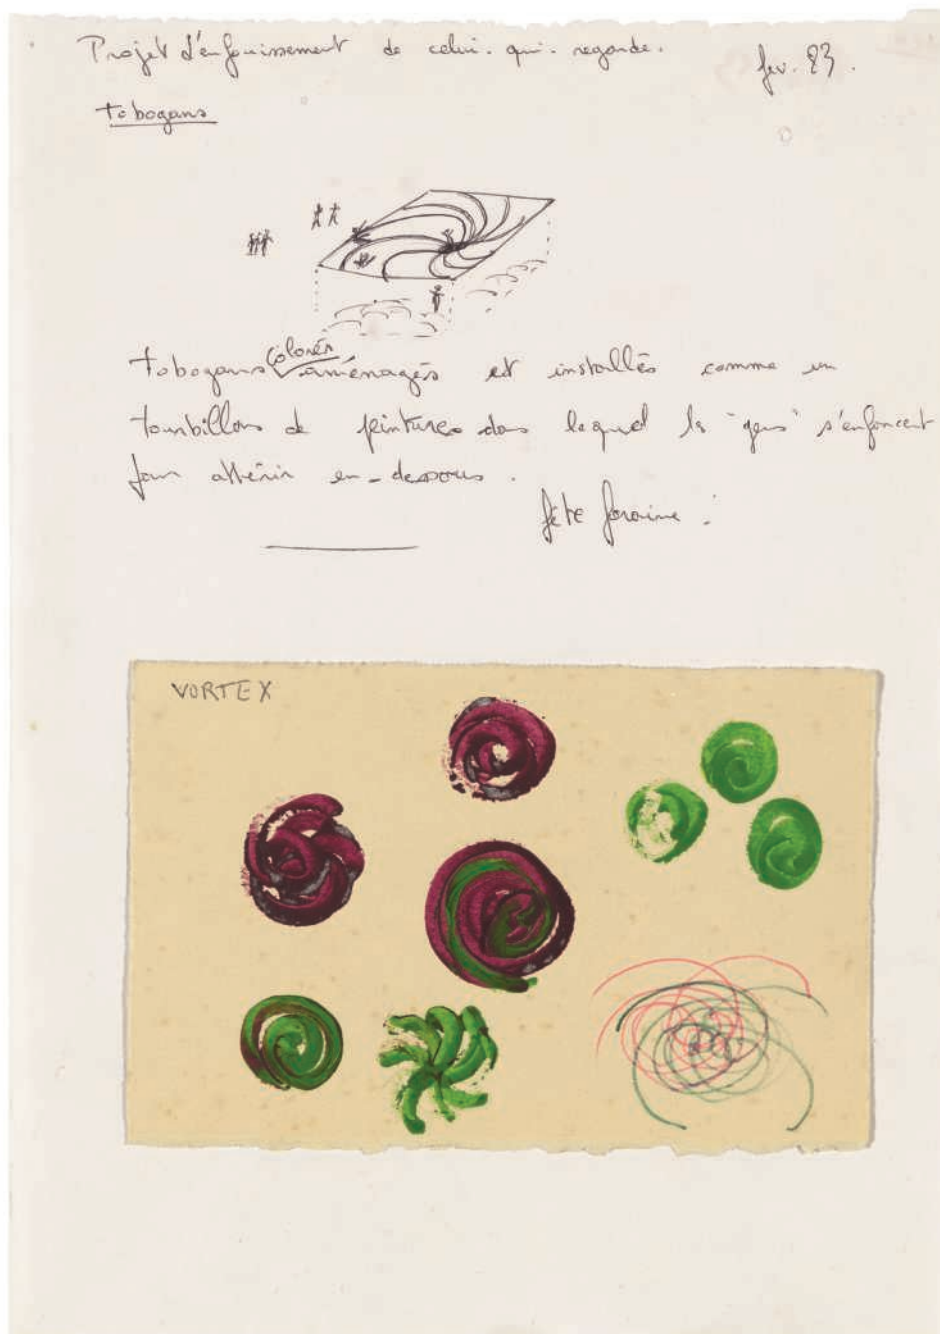 Projet d'enfouissement de celui. qui. regarde.
fev. 83.
tobogans
tobogans colorés aménagés et installés comme un
tourbillon de peintures dans lequel les "gens" s'enfoncent
pour attérir en-dessous.
fête foraine.
VORTEX